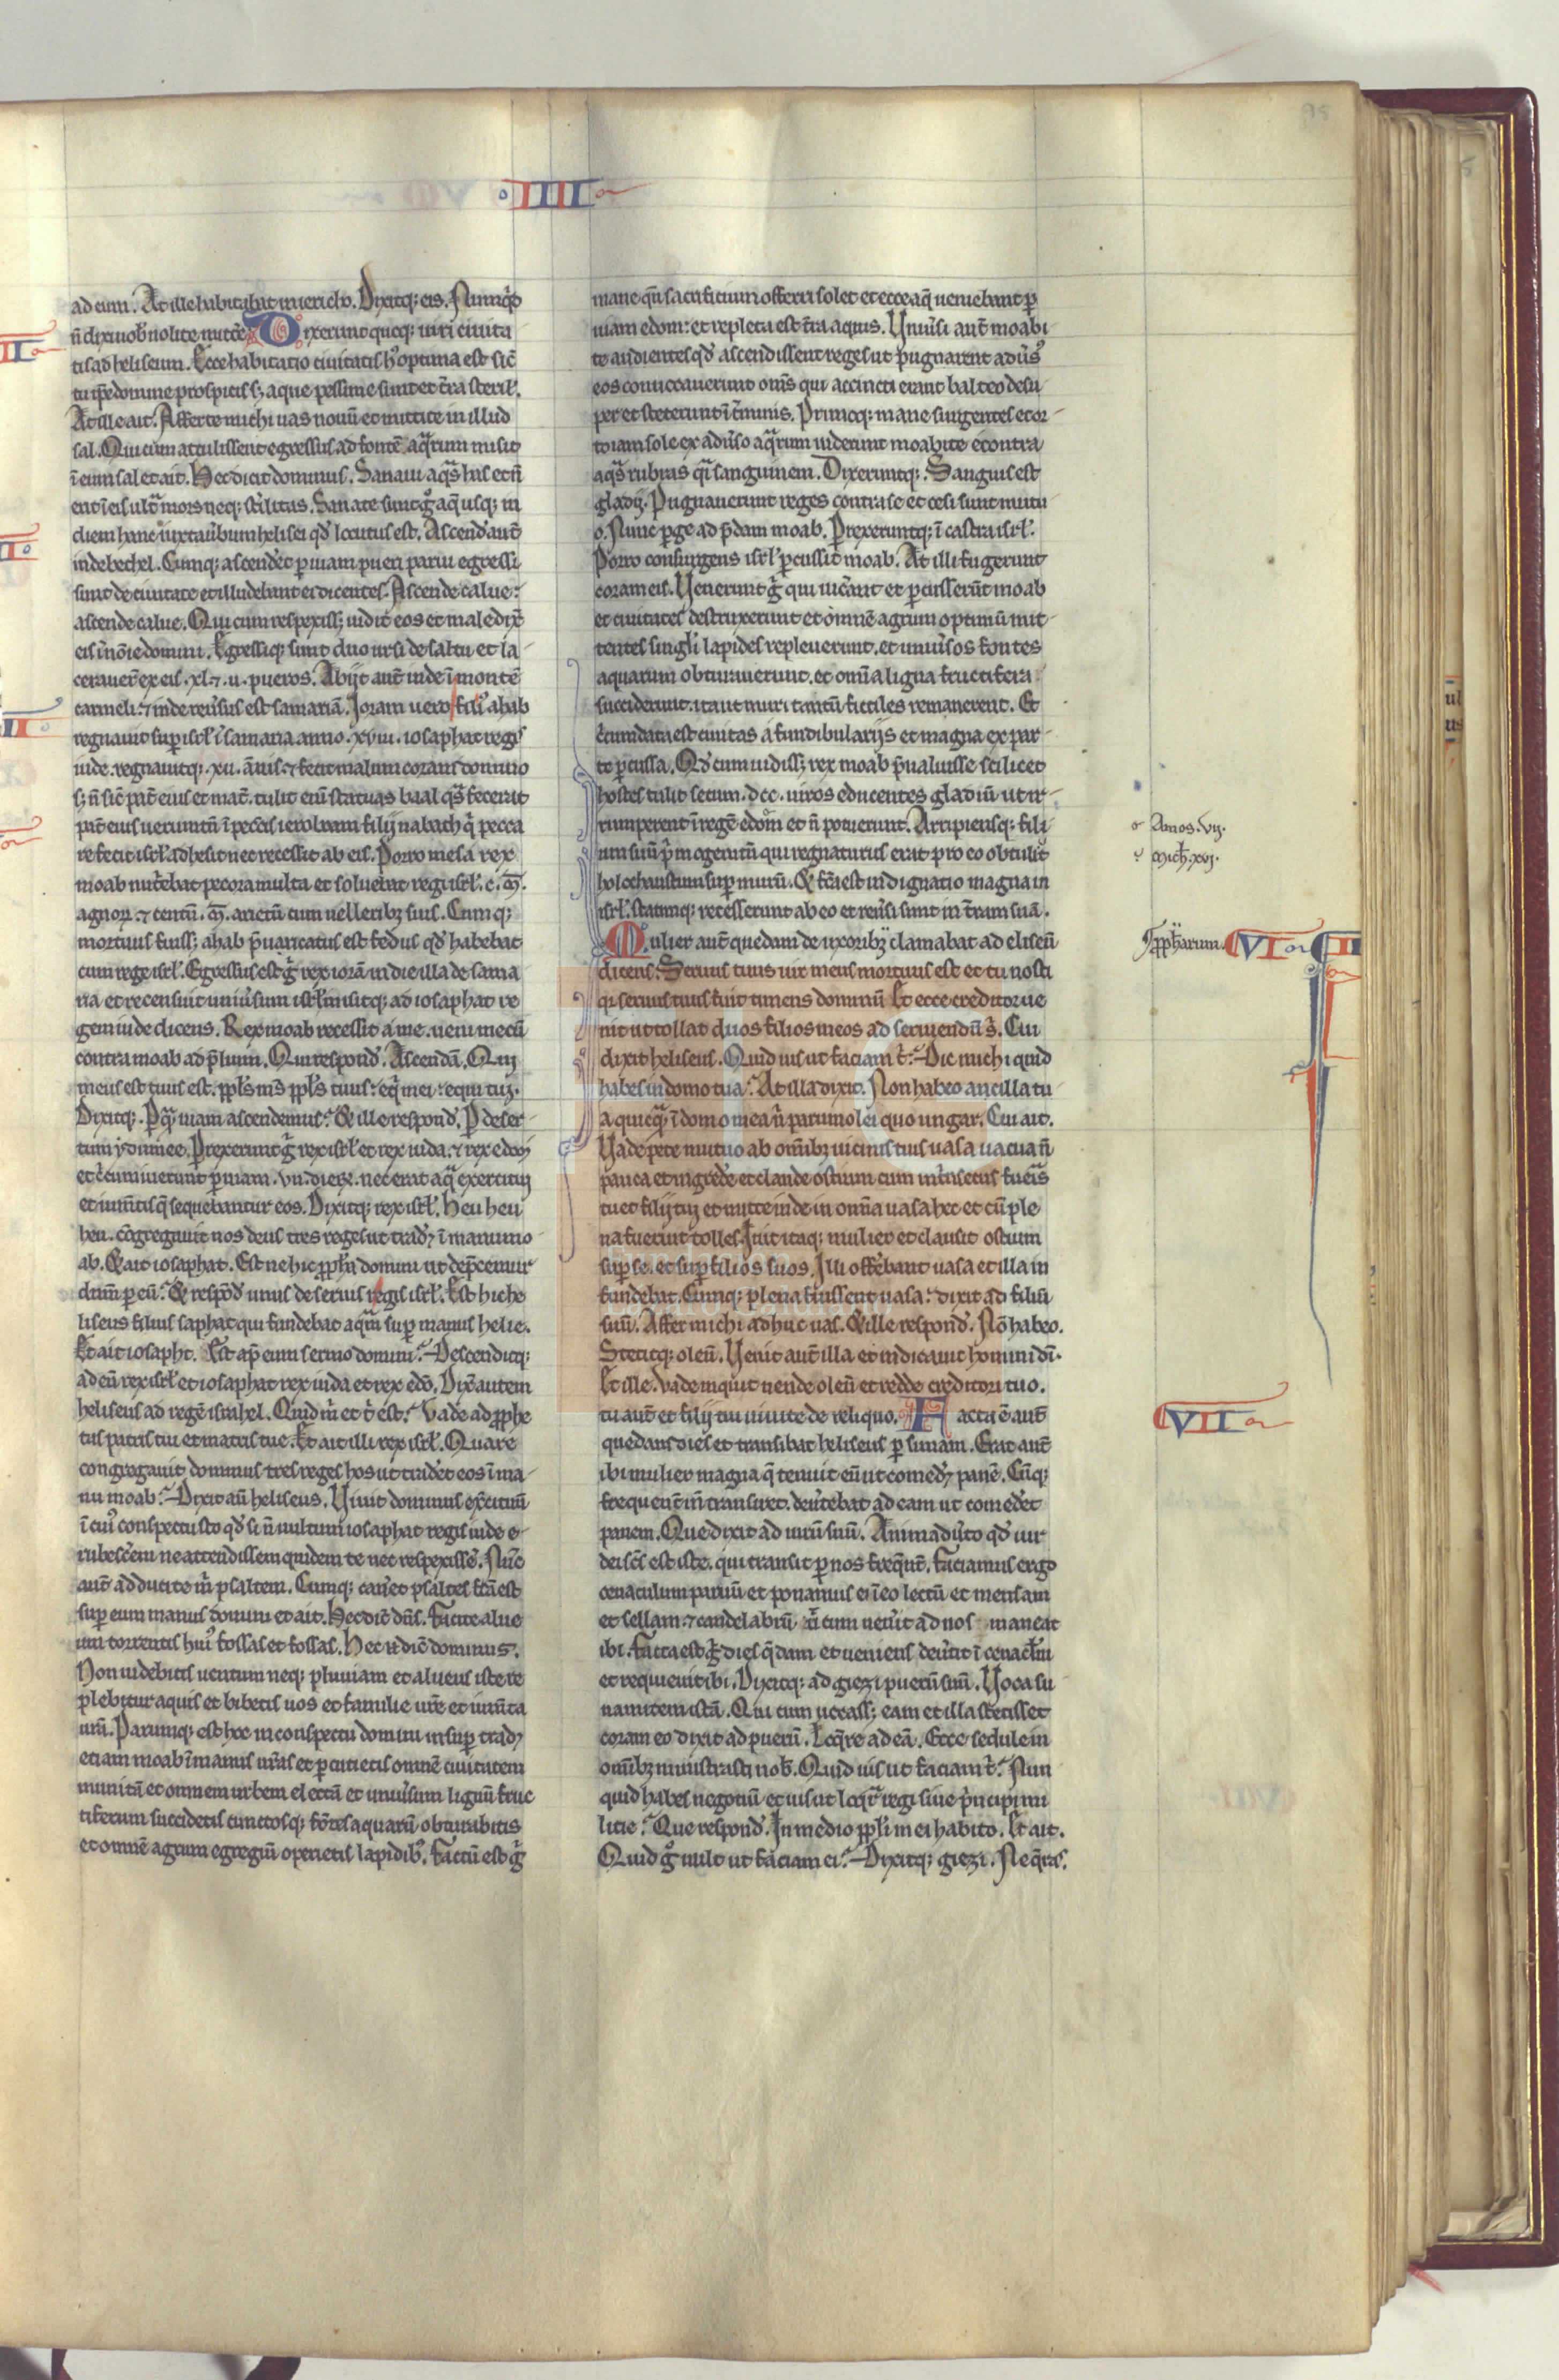 IIII
ad eum. At ille habitabat in iericho. Dixitq; eis. Nunq̇d
n̄ dixi uob̵ nolite mittẽ. Dixerunt quoq; uiri ciuita
tis ad heliseum. Ecce habitatio ciuitatis h̾ optima est sic̄
tu ip̄e domine prospicis s; aque pessime sunt et t̃ra steril̾.
At ille ait. Afferte michi uas nouū et mittite in illud
sal. Qui cum attulissent egressus ad fontē aq̃rum misit
ī eum sal et ait. Hec dicit dominus. Sanaui aq̃s has et n̄
ent ī eis ult̃ mors neq; st̾ilitas. Sanate sunt g̊ aq̄ usq; in
diem hanc iuxta ūbum helisei qd̾ locutus est. Ascend̾ aut̄
inde bethel. Cumq; ascend̾et p uiam pueri parui egressi
sunt de ciuitate et illudebant ei dicentes. Ascende calue:
ascende calue. Qui cum respexiss; uidit eos et maledix̄
eis ī nōie domini. Egressiq; sunt duo ursi de saltu et la-
cerauer̄ ex eis .xl. ⁊ .ii. pueros. Abijt aut̄ inde ī montē
carmeli. ⁊ inde reu̾sus est samariā. Ioram uero fili᾽ ahab
regnauit sup isrl̾ ī samaria anno .xviii. iosaphat regis
iude. regnauitq; .xii. ānis. ⁊ fecit malum coram domino
s; n̄ sic̄ pat̄ eius et mat̄. tulit em̄ statuas baal q̾s fecerat
pat̄ eius uerumt̄n ī pecc̄is ieroboam filij nabath q̇ pecca
re fecit isrl̾ adhesit nec recessit ab eis. Porro mesa rex
moab nut̾ebat pecora multa et soluebat regi isrl̾ .c. m̄.
agnor̵. ⁊ centū .m̄. arietū cum uelleribȝ suis. Cumq;
mortuus fuiss; ahab p̄uaricatus est fedus qd̾ habebat
cum rege isrl̾. Egressus est g̊ rex iorā in die illa de sama
ria et recensuit uniu̾sum isrl̾ misitq; ad iosaphat re
gem iude dicens. Rex moab recessit a me. ueni mecū
contra moab ad p̄lium. Qui respond̾. Ascendā. Qui
meus est tuus est. ppl̾s m̾s ppl̾s tuus: eq̇ mei: equi tui.
Dixitq;. P q̃ uiam ascendemus? Et ille respond̾. P deser-
tum ydumee. Prexerunt g̊ rex isrl̾ et rex iuda. ⁊ rex edom
et c̾cumierunt p uiam .vii. dier̵. nec erat aq̃ exercitui
et iumt̄is q̄ sequebantur eos. Dixitq; rex isrl̾. Heu heu
heu. cōgregauit nos deus tres reges ut trad̾; ī manu mo
ab. Et ait iosaphat. Est ne hic ppħa domini ut dep̄cemur
dnm̄ p eū? Et respōd̾ unus de seruis regis isrl̾. Est hic he
liseus filius saphat qui fundebat aq̃m sup manus helie.
Et ait iosapht. Est ap̄ eum sermo domini? Descenditq;
ad eū rex isrl̾ et iosaphat rex iuda et rex edō. Dix̄ autem
heliseus ad regē israhel. Quid m̾ et t̾ est? Vade ad pphe
tas patris tui et matris tue. Et ait illi rex isrl̾. Quare
congregauit dominus tres reges hos ut trad̾et eos ī ma-
nu moab? Dixit aū heliseus. Viuit dominus ex̾cituū
ī cui᾽ conspectu sto qd̾ si n̄ uultum iosaphat regis iude e-
rubesc̾em ne attendissem quidem te nec respexissē. Nūc
aut̄ adducite m̾ psaltem. Cumq; can̾et psaltes fc̄m est
sup eum manus domini et ait. Hec dic̄ dn̄s. Facite alue
um torrentis hui᾽ fossas et fossas. Hec .n. dic̄ dominus.
Non uidebitis uentum neq; pluuiam et alueus iste re
plebitur aquis et bibetis uos et familie ur̄e et iumt̄a
ur̄a. Parumq; est hoc in conspectu domini insup trad̾;
etiam moab ī manus ur̄as et pcutietis omnē ciuitatem
munitā et omnem urbem electā et uniu̾sum lignū fruc
tiferum succidetis cunctosq; fōtes aquarū obturabitis
et omnē agrum egregiū operietis lapidib᾽. Factū est g̊
mane qn̄ sacrificium offerri solet et ecce aq̄ ueniebant p
uiam edom: et repleta est t̃ra aquis. Uniu̾si aut̄ moabi
te audientes qd̾ ascendissent reges ut pugnarent adu̾s᾽
eos conuocauerunt om̄s qui accincti erant balteo desu
per et steterunt ī t̾minis. Primoq; mane surgentes et or-
to iam sole ex adu̾so aq̃rum uiderunt moabite econtra
aq̃s rubras q̃i sanguinem. Dixeruntq;. Sanguis est
gladij. Pugnauerunt reges contra se et cesi sunt mutu
o. Nunc pge ad p̄dam moab. Prexeruntq; ī castra isrl̾.
Porro consurgens isrl̾ pcussit moab. At illi fugerunt
coram eis. Uenerunt g̊ qui uic̾ant et pcusserūt moab
et ciuitates destruxerunt et omnē agrum optimū mit-
tentes singl̾i lapides repleuerunt. et uniu̾sos fontes
aquarum obturauerunt. et om̄ia ligna fructifera
succiderunt. ita ut muri tantū fictiles remanerent. Et
c̾cumdata est ciuitas a fundibularijs et magna ex par-
te pcussa. Qd̾ cum uidiss; rex moab p̄ualuisse scilicet
hostes tulit secum .dcc. uiros educentes gladiū ut ir-
rumperent ī regē edom et n̄ potuerunt. Arripiensq; fili
um suū p̾mogenitū qui regnaturus erat pro eo obtulit
holochaustum sup murū. Et fc̄a est indignatio magna in
isrl̾. statimq; recesserunt ab eo et reu̾si sunt in t̃ram suā.
Mulier aut̄ quedam de uxoribȝ clamabat ad eliseū
dicens. Seruus tuus uir meus mortuus est et tu nosti
q̇ seruus tuus fuit timens dominū. Et ecce creditor ue
nit ut tollat duos filios meos ad seruiendū s̾. Cui
dixit heliseus. Quid uis ut faciam t̾? Dic michi quid
habes in domo tua? At illa dixit. Non habeo ancilla tu
a quicq̃ ī domo mea n̾ parum olei quo ungar. Cui ait.
Uade pete mutuo ab omībȝ uicinis tuis uasa uacua n̄
pauca et ingred̾e et claude ostium cum int̾nsecus fueris
tu et filij tui et mitte inde in omnia uasa hec et cū ple
na fuerint tolles. Iuit itaq; mulier et clausit ostium
sup se. et sup filios suos. Illi offer̾ebant uasa et illa in
fundebat. Cumq; plena fuissent uasa: dixit ad filiū
suū. Affer michi adhuc uas. Et ille respond̾. Nō habeo.
Stetitq; oleū. Uenit aut̄ illa et indicauit homini dī.
Et ille. Vade inquit uende oleū et redde creditori tuo.
tu aut̄ et filij tui uiuite de reliquo. Facta ē aut̄
quedam dies et transibat heliseus p sunam. Erat aut̄
ibi mulier magna q̄ tenuit eū ut comed̾; panē. Cūq;
frequent̾ in̄ transiret. deu̾tebat ad eam ut comed̾et
panem. Que dixit ad uirū suū. Animadu̾to qd̾ uir
dei sc̄s est iste. qui transit p nos freq̄nt̾. Faciamus ergo
cenaculum paruū et ponamus ei ī eo lectū et mensam
et sellam. ⁊ candelabrū. ut cum uen̾it ad nos maneat
ibi. Facta est g̊ dies q̄dam et ueniens deu̾tit ī cenacl̾m
et requieuit ibi. Dixitq; ad giezi puerū suū. Uoca su
namitem istā. Qui cum uocass; eam et illa stetisset
coram eo dixit ad puerū. Loq̄re ad eā. Ecce sedule in
omībȝ ministrasti nob̵. Quid uis ut faciam t̾? Nun
quid habes negotiū et uis ut loq̃r regi siue p̾ncipi mi
licie? Que respond̾. In medio ppl̾i mei habito. Et ait.
Quid g̊ uult ut faciam ei? Dixitq; giezi. Ne q̄ras.
Amos. vij.
mich̾. xvj.
ppħarum.
VI
VII
95